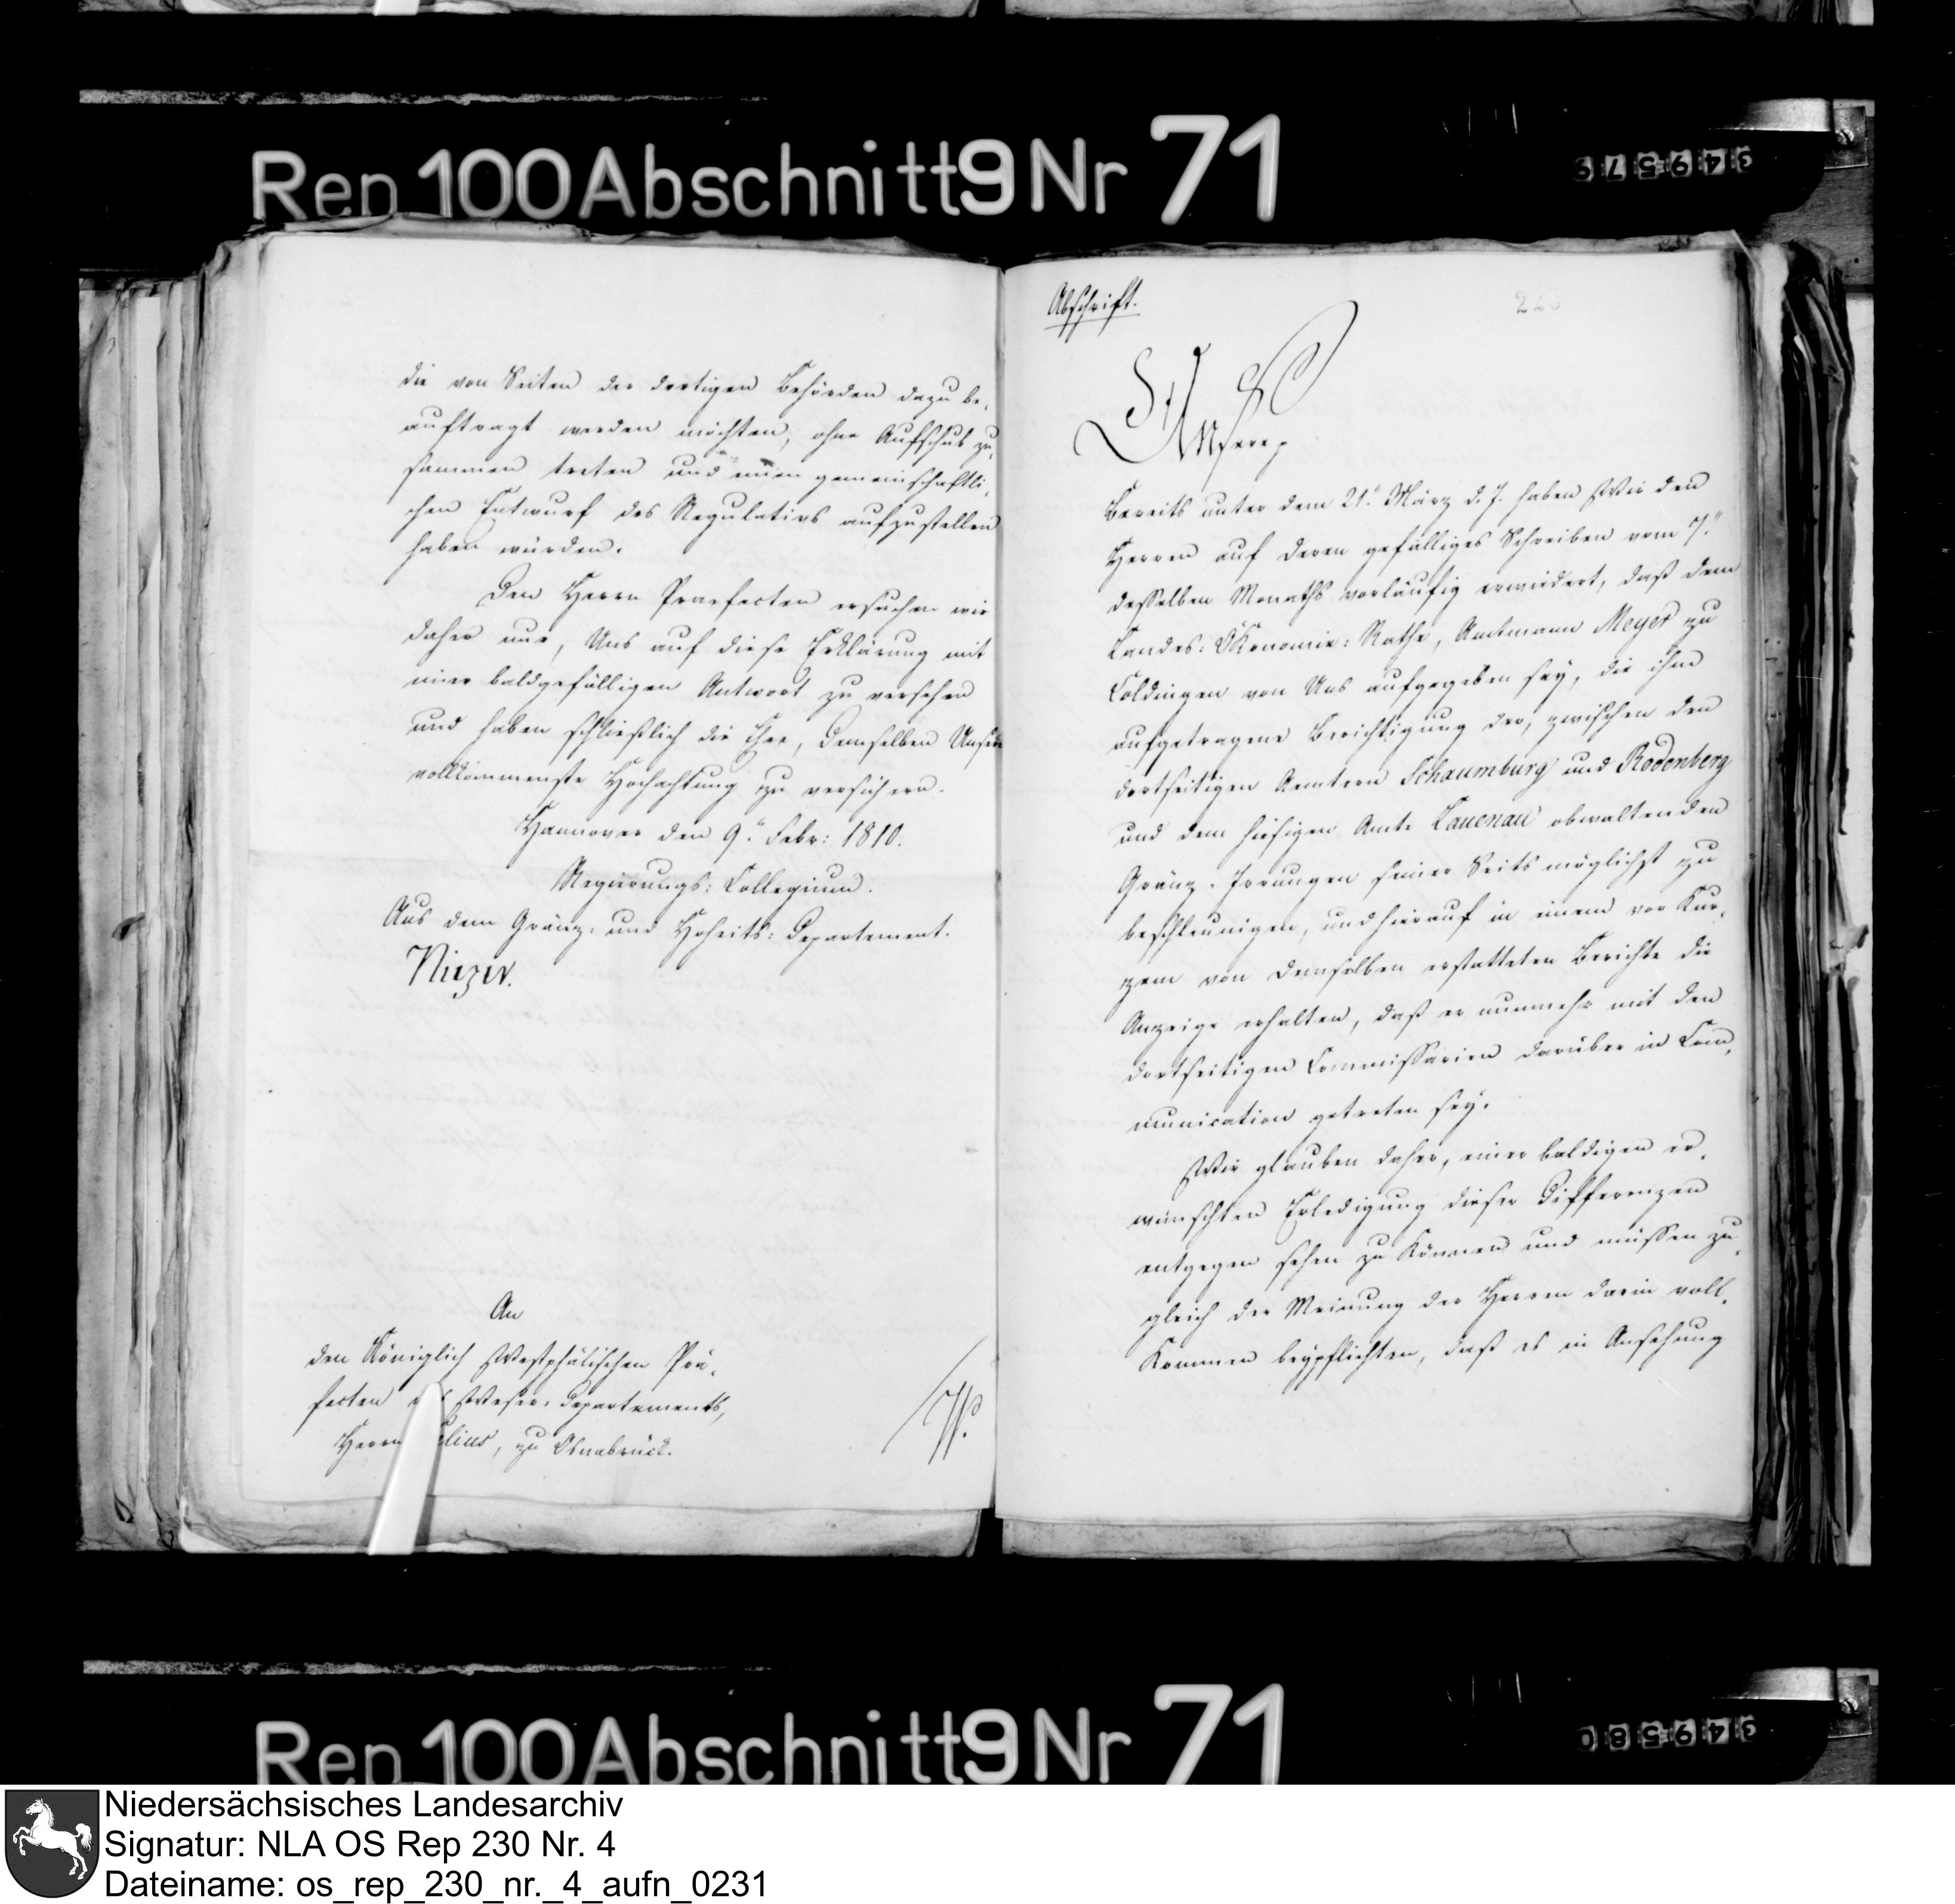 Rep 100 Abschnitt 9 Nr 71
349579
die von Seiten der dortigen Behörden dazu be,
auftragt werden möchten, ohne Aufschub zu,
sammen treten und einen gemeinschaftli,
chen Entwurf des Regulativs aufzustellen
haben würden.
Den Herrn Praefecten ersuchen wir
daher nur, Uns auf diese Erklärung mit
einer baldgefälligen Antwort zu versehen
und haben schließlich die Ehre, demselben Unsere
vollkommenste Hochachtung zu versichern.
Hannover den 9. Febr: 1810.
Regierungs: Collegium.
Aus dem Gränz- und Hoheits: Departement.
Nieper.
An
den Königlich Westphälischen Prä,
fecten des Weser, Departements,
Herrn zu Osnabrück.
Abschrift.
Unsere
Bereits unter dem 21. März d. J. haben Wir den
Herren auf deren gefälliges Schreiben vom 7.
desselben Monaths vorläufig erwiedert, daß dem
Landes: Ökonomie: Rathe, Amtmann Meyer zu
Coldingen von Uns aufgegeben sey, die ihm
aufgetragene Berichtigung der, zwischen den
dortseitigen Aemtern Schaumburg und Rodenberg
und dem hiesigen Amte Lauenau obwaltenden
Gränz-Irrungen seiner Seits möglichst zu
beschleunigen, und hierauf in einem vor Kur,
zem von demselben erstatteten Berichte die
Anzeige erhalten, daß er nunmehr mit den
dortseitigen Commissarien darüber in Com,
munication getreten sey.
Wir glauben daher, einer baldigen er,
wünschten Erledigung dieser Differenzen
entgegen sehen zu können und müssen zu,
gleich der Meinung der Herren darin voll,
kommen beypflichten, daß es in Ansehung
Rep 100 Abschnitt 9 Nr 71
349580
Niedersächsisches Landesarchiv
Signatur: NLA OS Rep 230 Nr. 4
Dateiname: os_rep_230_nr._4_aufn_0231